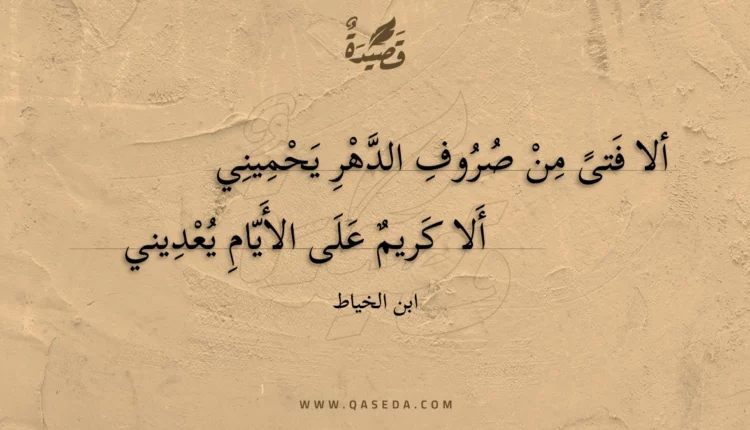 قَصِيدَةٌ
ألا فَتىً مِنْ صُرُوفِ الدَّهْرِ يَحْمِينِي
أَلا كَريمٌ عَلَى الأَيّامِ يُعْدِيني
ابن الخياط
WWW.QASEDA.COM